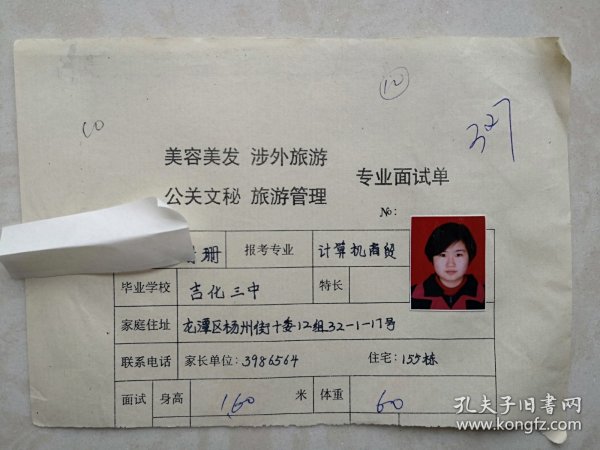 10
10
327
美容美发 涉外旅游
公关文秘 旅游管理
专业面试单
No:
珊 报考专业 计算机商贸
毕业学校 吉化三中 特长
家庭住址 龙潭区杨州街十委12组32-1-17号
联系电话 家长单位:3986564 住宅:155栋
面试 身高 1.60 米 体重 60
孔夫子旧书网
www.kongfz.com